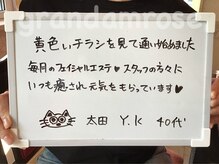 grandamrose
黄色いチラシを見て通い始めました
毎月のフェイシャルエステ♥スタッフの方々に
いつも癒され元気をもらっています♥
太田 Y.K 40代